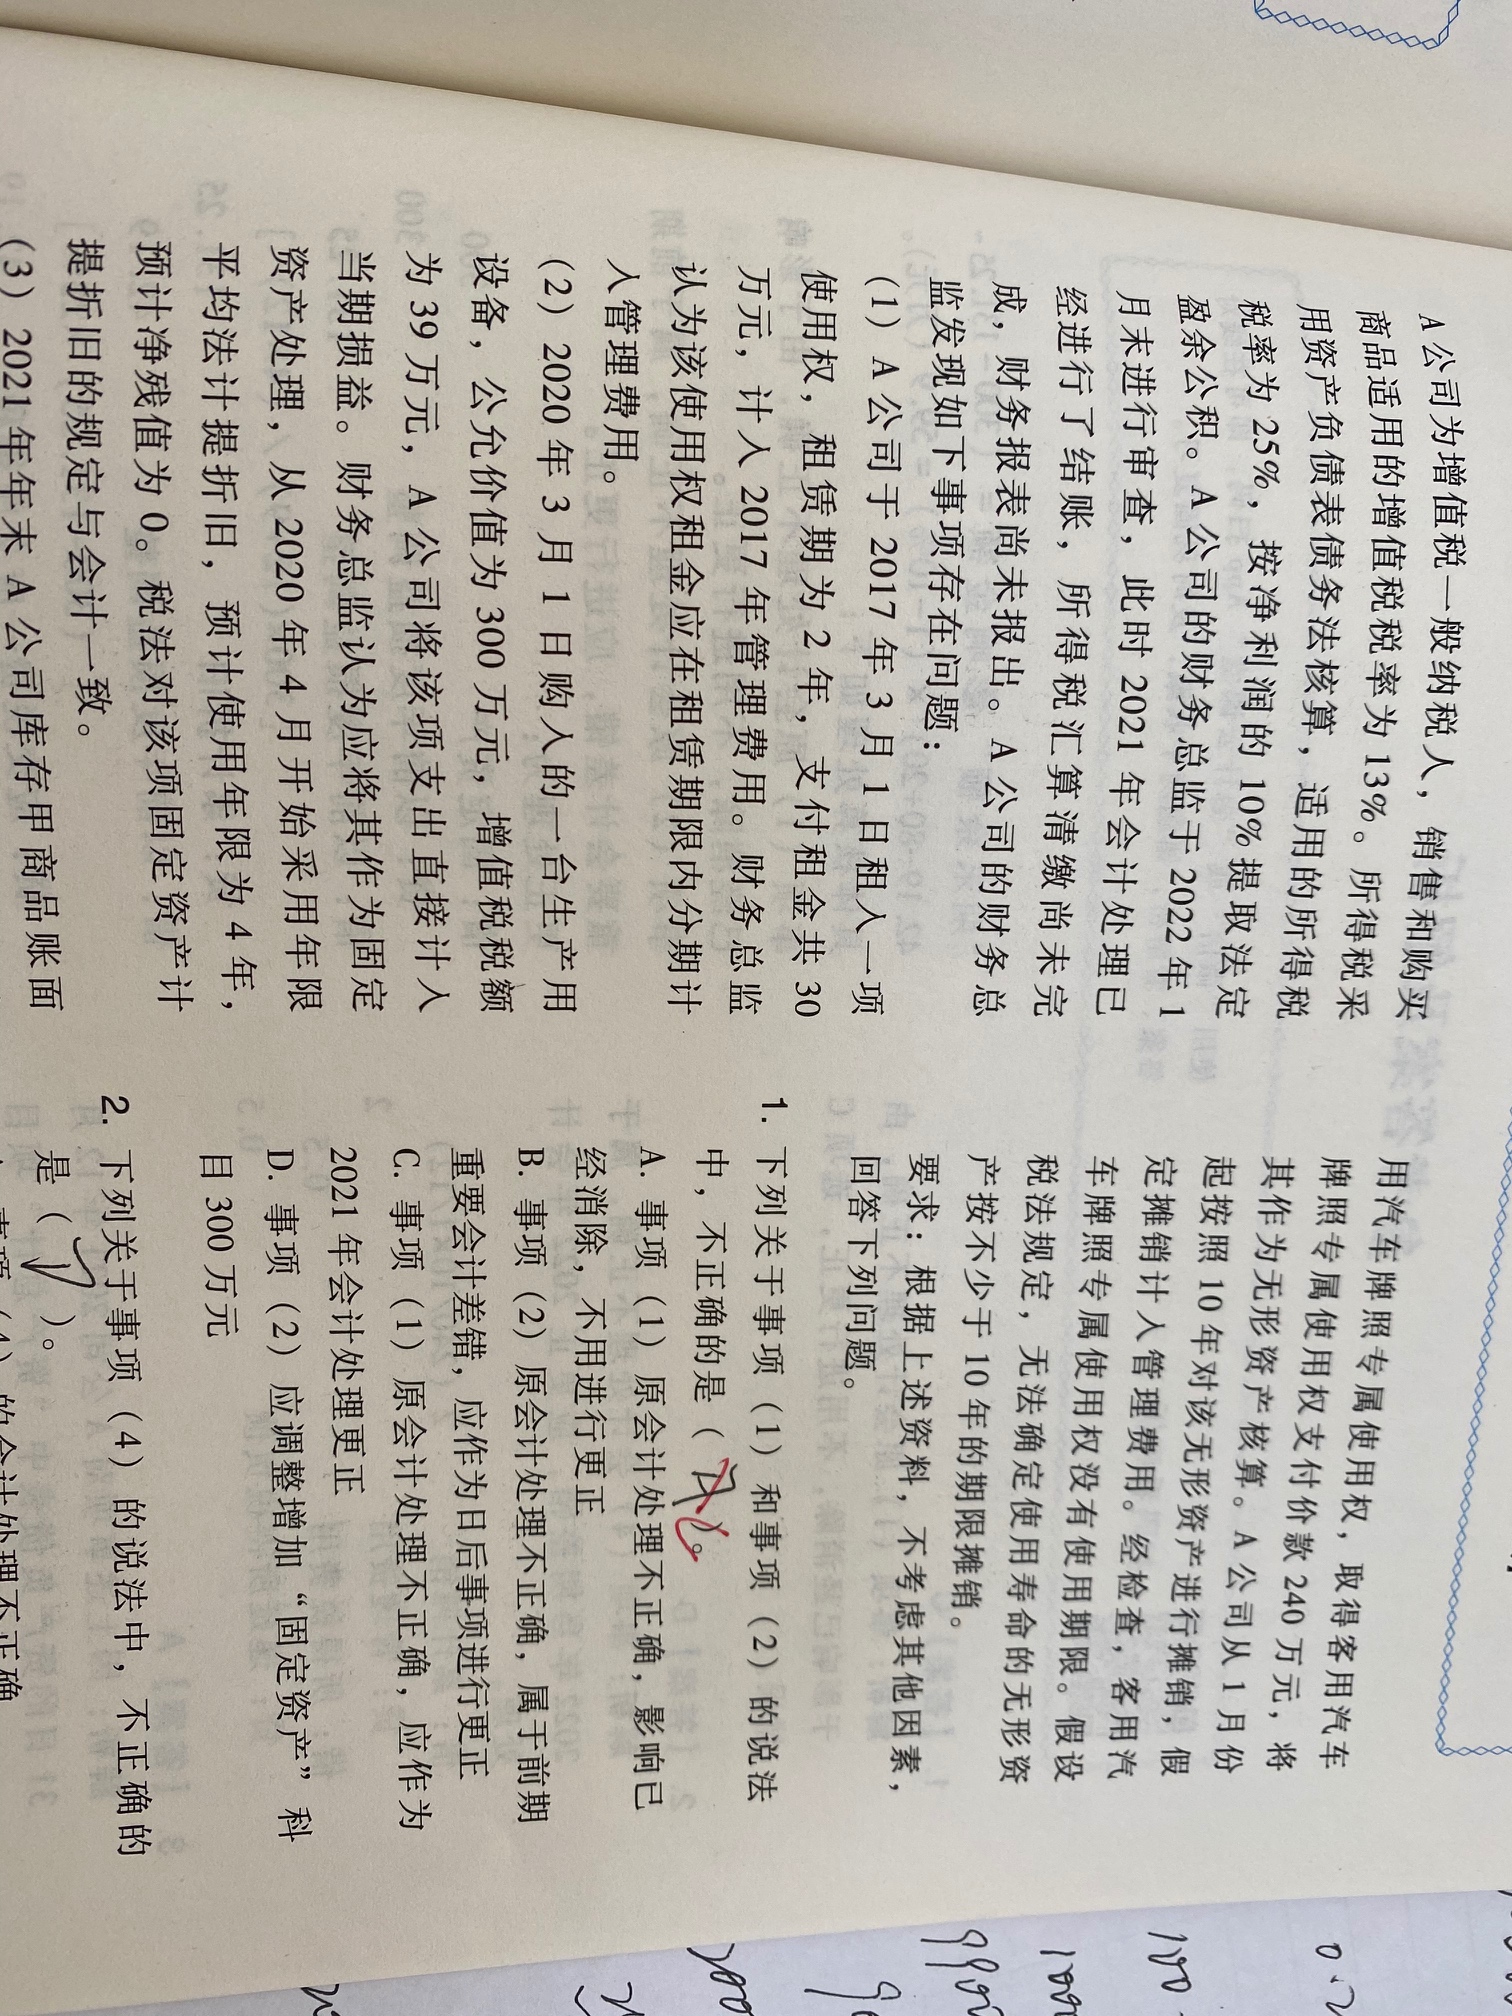 A公司为增值税一般纳税人，销售和购买
商品适用的增值税税率为13%。所得税采
用资产负债表债务法核算，适用的所得税
税率为25%，按净利润的10%提取法定
盈余公积。A公司的财务总监于2022年1
月末进行审查，此时2021年会计处理已
经进行了结账，所得税汇算清缴尚未完
成，财务报表尚未报出。A公司的财务总
监发现如下事项存在问题：
（1）A公司于2017年3月1日租入一项
使用权，租赁期为2年，支付租金共30
万元，计入2017年管理费用。财务总监
认为该使用权租金应在租赁期限内分期计
入管理费用。
（2）2020年3月1日购入的一台生产用
设备，公允价值为300万元，增值税税额
为39万元，A公司将该项支出直接计入
当期损益。财务总监认为应将其作为固定
资产处理，从2020年4月开始采用年限
平均法计提折旧，预计使用年限为4年，
预计净残值为0。税法对该项固定资产计
提折旧的规定与会计一致。
（3）2021年年末A公司库存甲商品账面
用汽车牌照专属使用权，取得客用汽车
牌照专属使用权支付价款240万元，将
其作为无形资产核算。A公司从1月份
起按照10年对该无形资产进行摊销，假
定摊销计入管理费用。经检查，客用汽
车牌照专属使用权没有使用期限。假设
税法规定，无法确定使用寿命的无形资
产按不少于10年的期限摊销。
要求：根据上述资料，不考虑其他因素，
回答下列问题。
1. 下列关于事项（1）和事项（2）的说法
中，不正确的是（ C ）。
A. 事项（1）原会计处理不正确，影响已
经消除，不用进行更正
B. 事项（2）原会计处理不正确，属于前期
重要会计差错，应作为日后事项进行更正
C. 事项（1）原会计处理不正确，应作为
2021年会计处理更正
D. 事项（2）应调整增加“固定资产”科
目300万元
2. 下列关于事项（4）的说法中，不正确的
是（ ）。